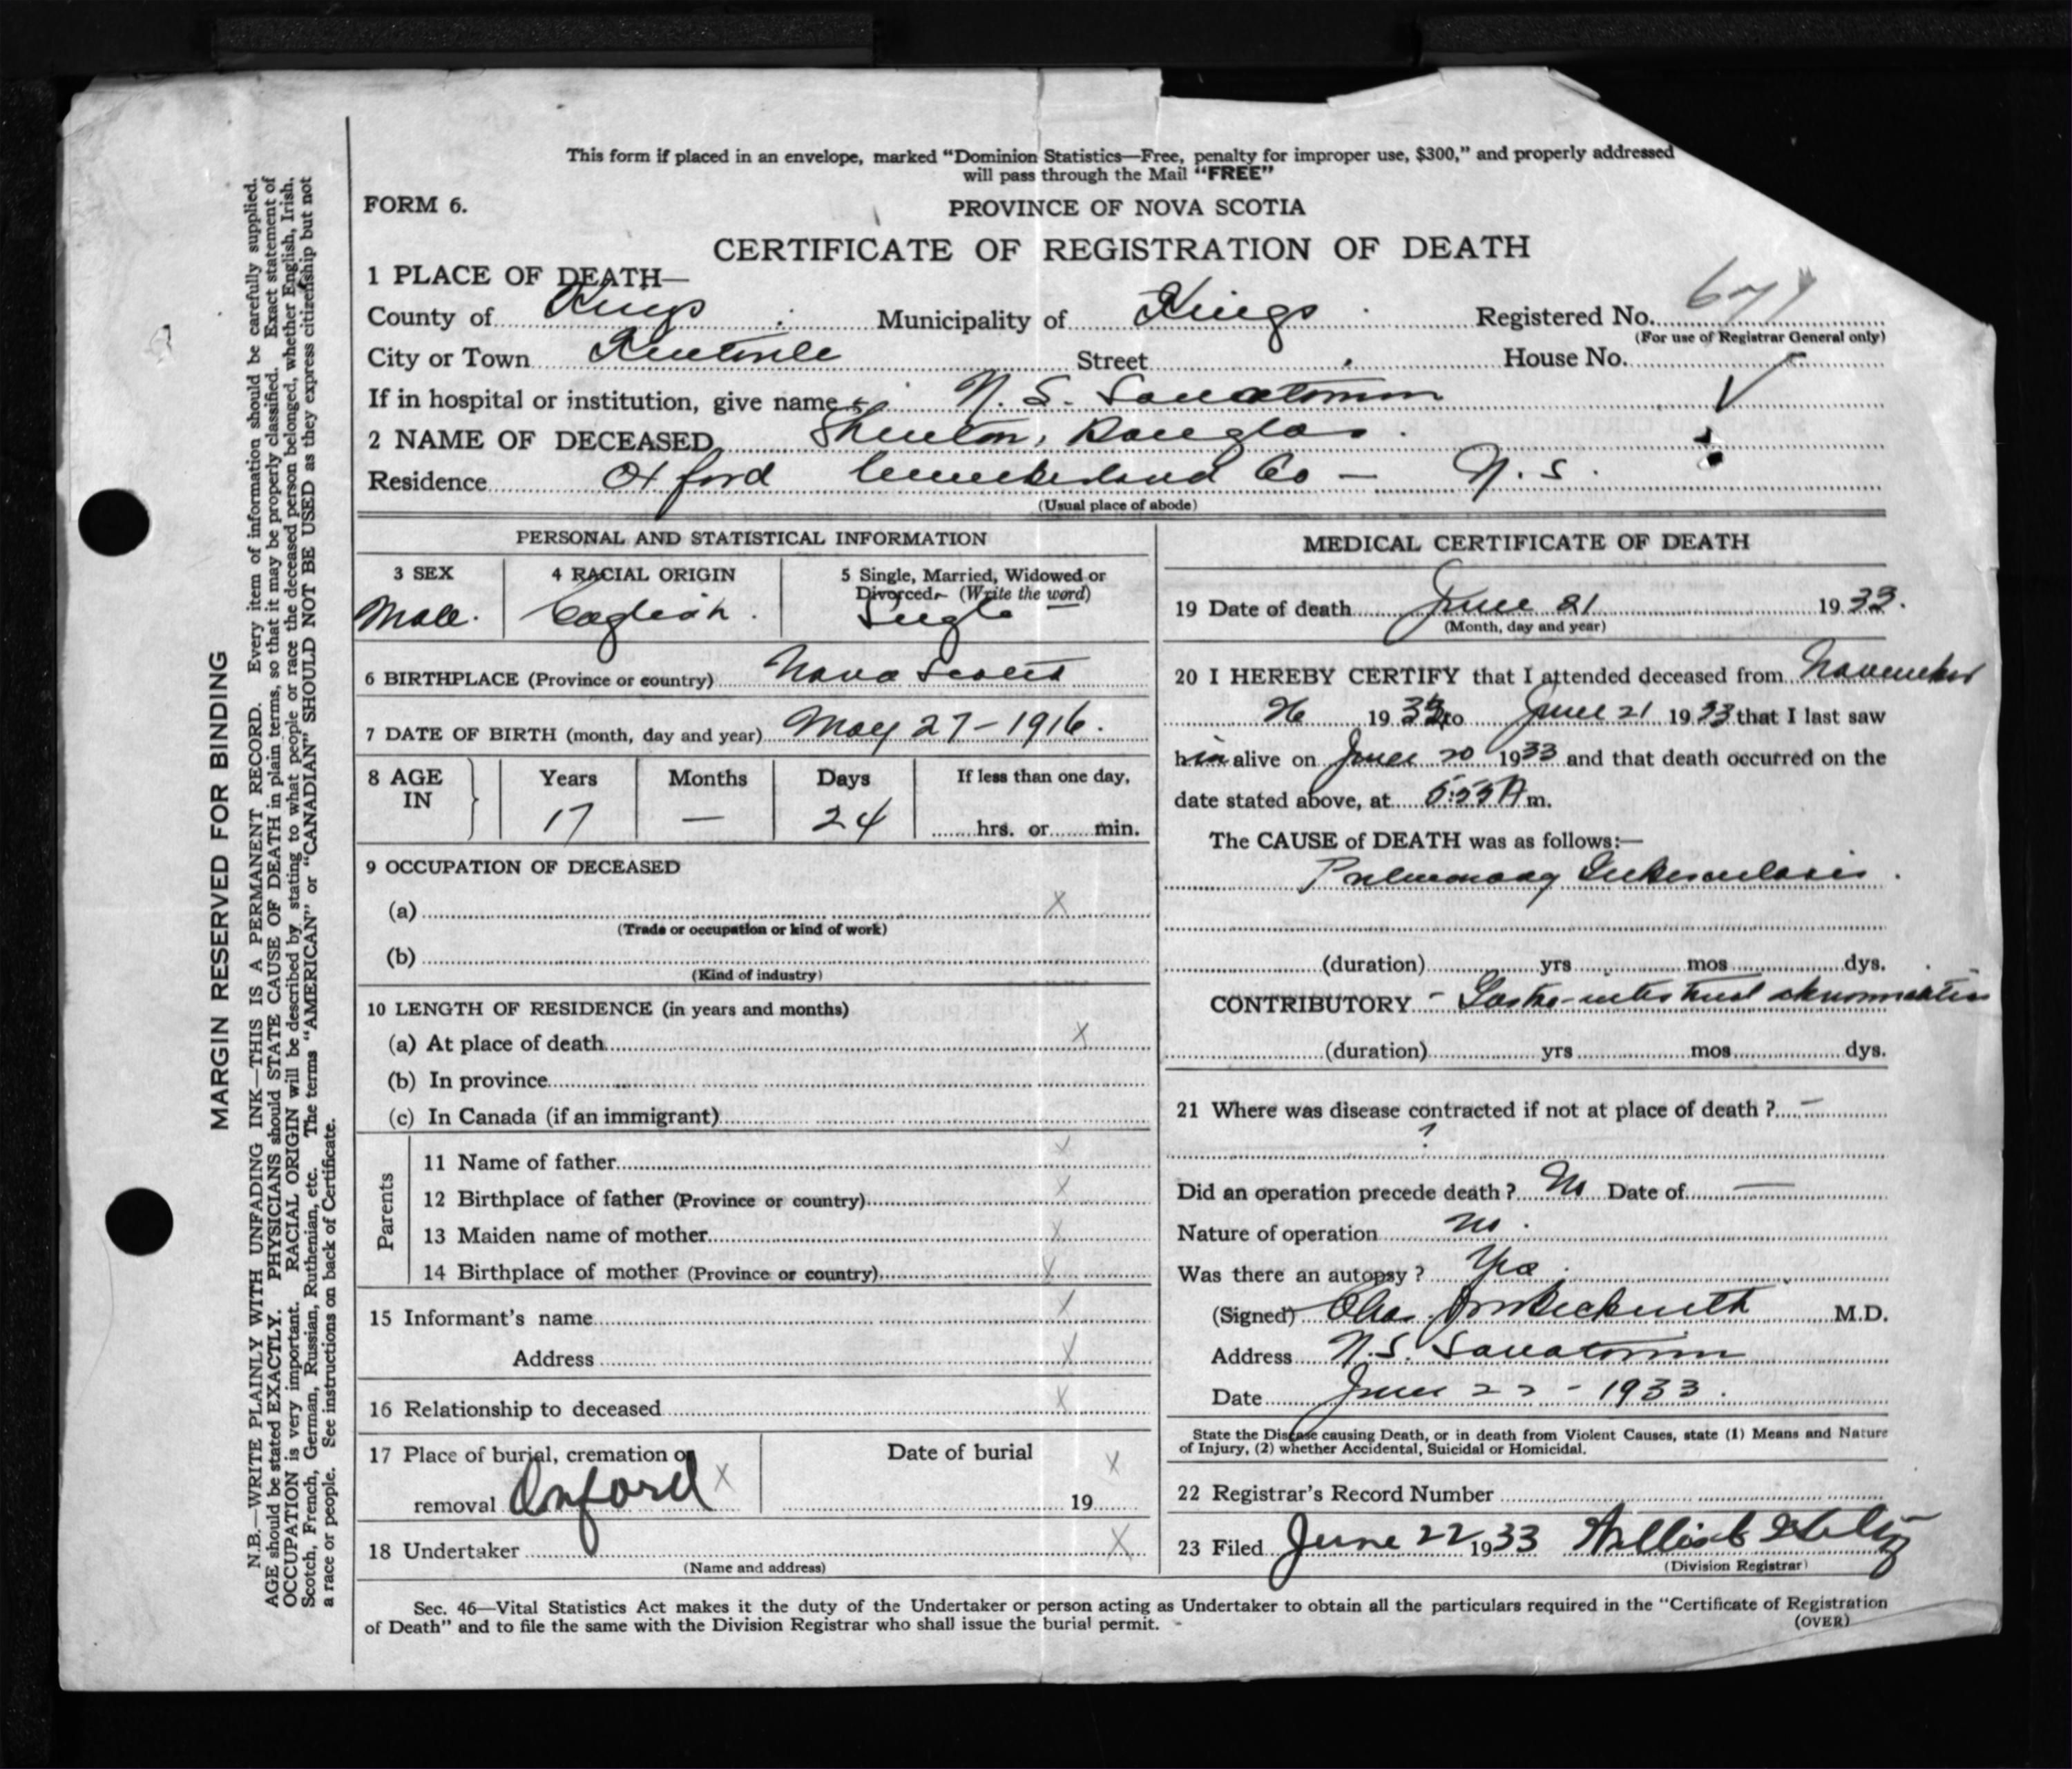 This form if placed in an envelope, marked “Dominion Statistics—Free, penalty for improper use, $300,” and properly addressed
will pass through the Mail “FREE”
FORM 6.
PROVINCE OF NOVA SCOTIA
CERTIFICATE OF REGISTRATION OF DEATH
1 PLACE OF DEATH—
County of Kings Municipality of Kings Registered No.
(For use of Registrar General only)
City or Town Kentville Street House No.
If in hospital or institution, give name N. S. Sanatorium
2 NAME OF DECEASED Shenton, Douglas.
Residence Oxford Cumberland Co — N. S.
(Usual place of abode)
PERSONAL AND STATISTICAL INFORMATION
3 SEX
Male.
4 RACIAL ORIGIN
English.
5 Single, Married, Widowed or
Divorced (Write the word)
Single
6 BIRTHPLACE (Province or country) Nova Scotia
7 DATE OF BIRTH (month, day and year) May 27-1916.
8 AGE IN Years Months Days If less than one day,
17 — 24 hrs. or min.
9 OCCUPATION OF DECEASED
(a) X
(Trade or occupation or kind of work)
(b)
(Kind of industry)
10 LENGTH OF RESIDENCE (in years and months)
(a) At place of death X
(b) In province
(c) In Canada (if an immigrant)
Parents
11 Name of father X
12 Birthplace of father (Province or country) X
13 Maiden name of mother X
14 Birthplace of mother (Province or country) X
15 Informant's name X
Address X
16 Relationship to deceased X
17 Place of burial, cremation or
removal Oxford X
Date of burial X
19
18 Undertaker X
(Name and address)
MEDICAL CERTIFICATE OF DEATH
19 Date of death June 21 1933.
(Month, day and year)
20 I HEREBY CERTIFY that I attended deceased from November
26 19 to June 21 1933 that I last saw
him alive on June 20 1933 and that death occurred on the
date stated above, at 5:55 A m.
The CAUSE of DEATH was as follows:—
Pulmonary Tuberculosis.
(duration) yrs mos dys.
CONTRIBUTORY - Gastro-intestinal
(duration) yrs mos dys.
21 Where was disease contracted if not at place of death ? —
?
Did an operation precede death ? No Date of —
Nature of operation no.
Was there an autopsy ? Yes.
(Signed) Beckwith M.D.
Address N.S. Sanatorium
Date June 22 - 1933.
State the Disease causing Death, or in death from Violent Causes, state (1) Means and Nature
of Injury, (2) whether Accidental, Suicidal or Homicidal.
22 Registrar's Record Number
23 Filed June 22 1933
(Division Registrar)
Sec. 46—Vital Statistics Act makes it the duty of the Undertaker or person acting as Undertaker to obtain all the particulars required in the “Certificate of Registration
of Death” and to file the same with the Division Registrar who shall issue the burial permit.
(OVER)
MARGIN RESERVED FOR BINDING
N.B.—WRITE PLAINLY WITH UNFADING INK—THIS IS A PERMANENT RECORD. Every item of information should be carefully supplied.
AGE should be stated EXACTLY. PHYSICIANS should STATE CAUSE OF DEATH in plain terms, so that it may be properly classified. Exact statement of
OCCUPATION is very important. RACIAL ORIGIN will be described by stating to what people or race the deceased person belonged, whether English, Irish,
Scotch, French, German, Russian, Ruthenian, etc. The terms “AMERICAN” or “CANADIAN” SHOULD NOT BE USED as they express citizenship but not
a race or people. See instructions on back of Certificate.